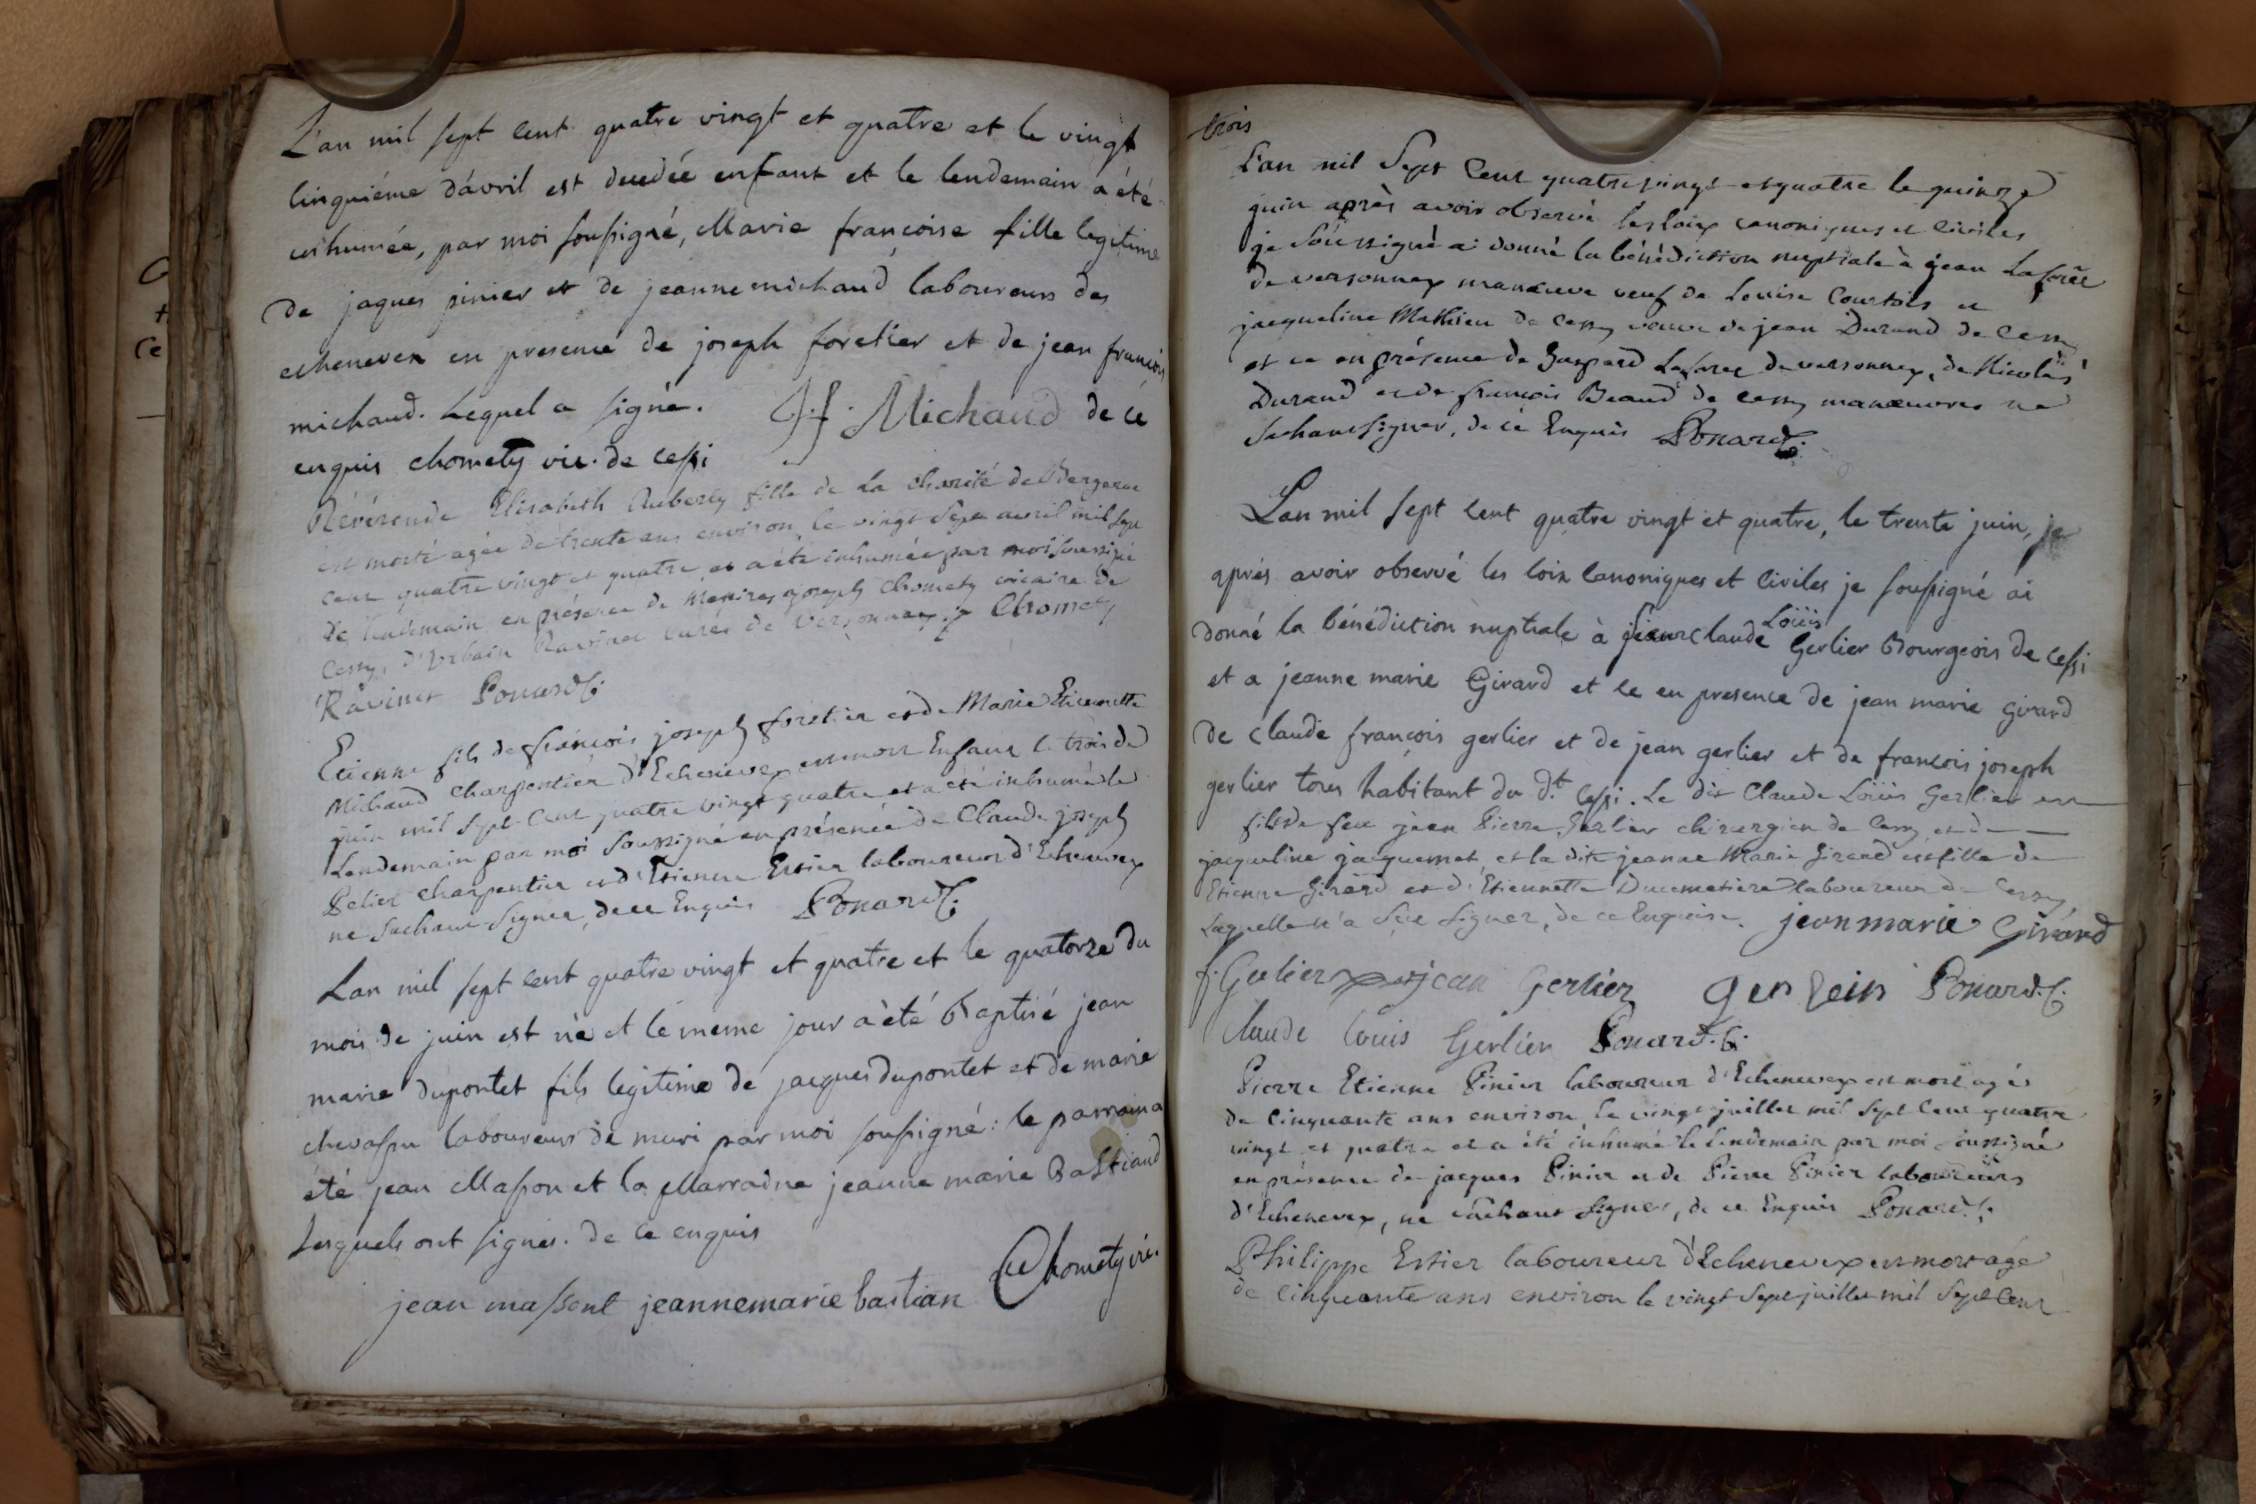 L'an mil sept cent quatre vingt et quatre et le vingt
cinquiéme d'avril est decedée enfant et le lendemain a été
inhumée, par moi soussigné, Marie françoise fille legitime
de jaques pinier et de jeanne michaud laboureurs des
echenevex en presence de joseph foretier et de jean francois
michaud. Lequel a signé. J. f. Michaud de ce
enquis chomety vic. de cessi
Révérende Elisabeth Auberty fille de La charité de
est morte agée de trente ans environ, le vingt Sept avril mil Sept
cent quatre vingt et quatre et a été inhumée par moi soussigné
le Lendemain en présence de Messires joseph Chomety vicaire de
Cessy, d'Urbain Ravinet curé de Versonnex. Chomety
Ravinet Ponard C.
Etienne fils de françois joseph foretier et de Marie Etiennette
Michaud Charpentier d'Echenevex est mort Enfant le trois de
juin mil Sept Cent quatre vingt quatre et a été inhumé le
Lendemain par moi Soussigné en présence de Claude joseph
Pelier Charpentier et d'Etienne Estier laboureur d'Echenevex
ne Sachant Signer, de ce Enquis Ponard C.
L'an mil sept cent quatre vingt et quatre et le quatorze du
mois de juin est né et le meme jour a été Baptisé jean
marie dupontet fils legitime de jacques dupontet et de marie
chevassu laboureurs de muri par moi soussigné: le parrain a
été jean Masson et la Marradne jeanne marie Bastiand
Lesquels ont signés. de ce enquis
Chomety vic.
jean massont jeannemarie bastian
trois
L'an mil Sept Cent quatre vingt et quatre le quinze
juin après avoir observé les loix canoniques et Civiles
je Soussigné ai donné la bénédiction nuptiale à jean
de versonnex manœuvre veuf de Louise Courtois et
jacqueline Mathieu de Cessy veuve de jean Durand de Cessy
et ce en présence de Gaspard de versonnex, de Nicolas
Durand et de françois Beaud de Cessy manœuvres ne
Sachant signer, de ce Enquis Ponard C.
L'an mil sept cent quatre vingt et quatre, le trente juin, je
aprés avoir observé les loix canoniques et Civiles je soussigné ai
donné la bénédiction nuptiale à sieur claude Loüis Gerlier Bourgeois de cessi
et a jeanne marie Girard et ce en presence de jean marie girard
de claude françois gerlier et de jean gerlier et de francois joseph
gerlier tous habitant du d.t cessi. Le dit Claude Loüis Gerlier est
fils de feu jean Pierre Gerlier chirurgien de Cessy et de
jacqueline jacquemet, et la dite jeanne Marie Girard est fille de
Etienne Girard et d'Etiennette Ducimetiere laboureur de Cessy,
Laquelle n'a Sçu Signer, de ce Enquise. jean marie Girard
f. Gerlier jean Gerlier Ponard. C.
Claude Louis Gerlier Ponard. C.
Pierre Etienne Pinier laboureur d'Echenevex est mort agé
de Cinquante ans environ le vingt juillet mil Sept Cent quatre
vingt et quatre et a été inhumé le Lendemain par moi soussigné
en présence de jacques Pinier et de Pierre Pinier laboureurs
d'Echenevex, ne Sachant Signer, de ce Enquis Ponard. C.
Philippe Estier laboureur d'Echenevex est mort agé
de Cinquante ans environ le vingt Sept juillet mil Sept Cent